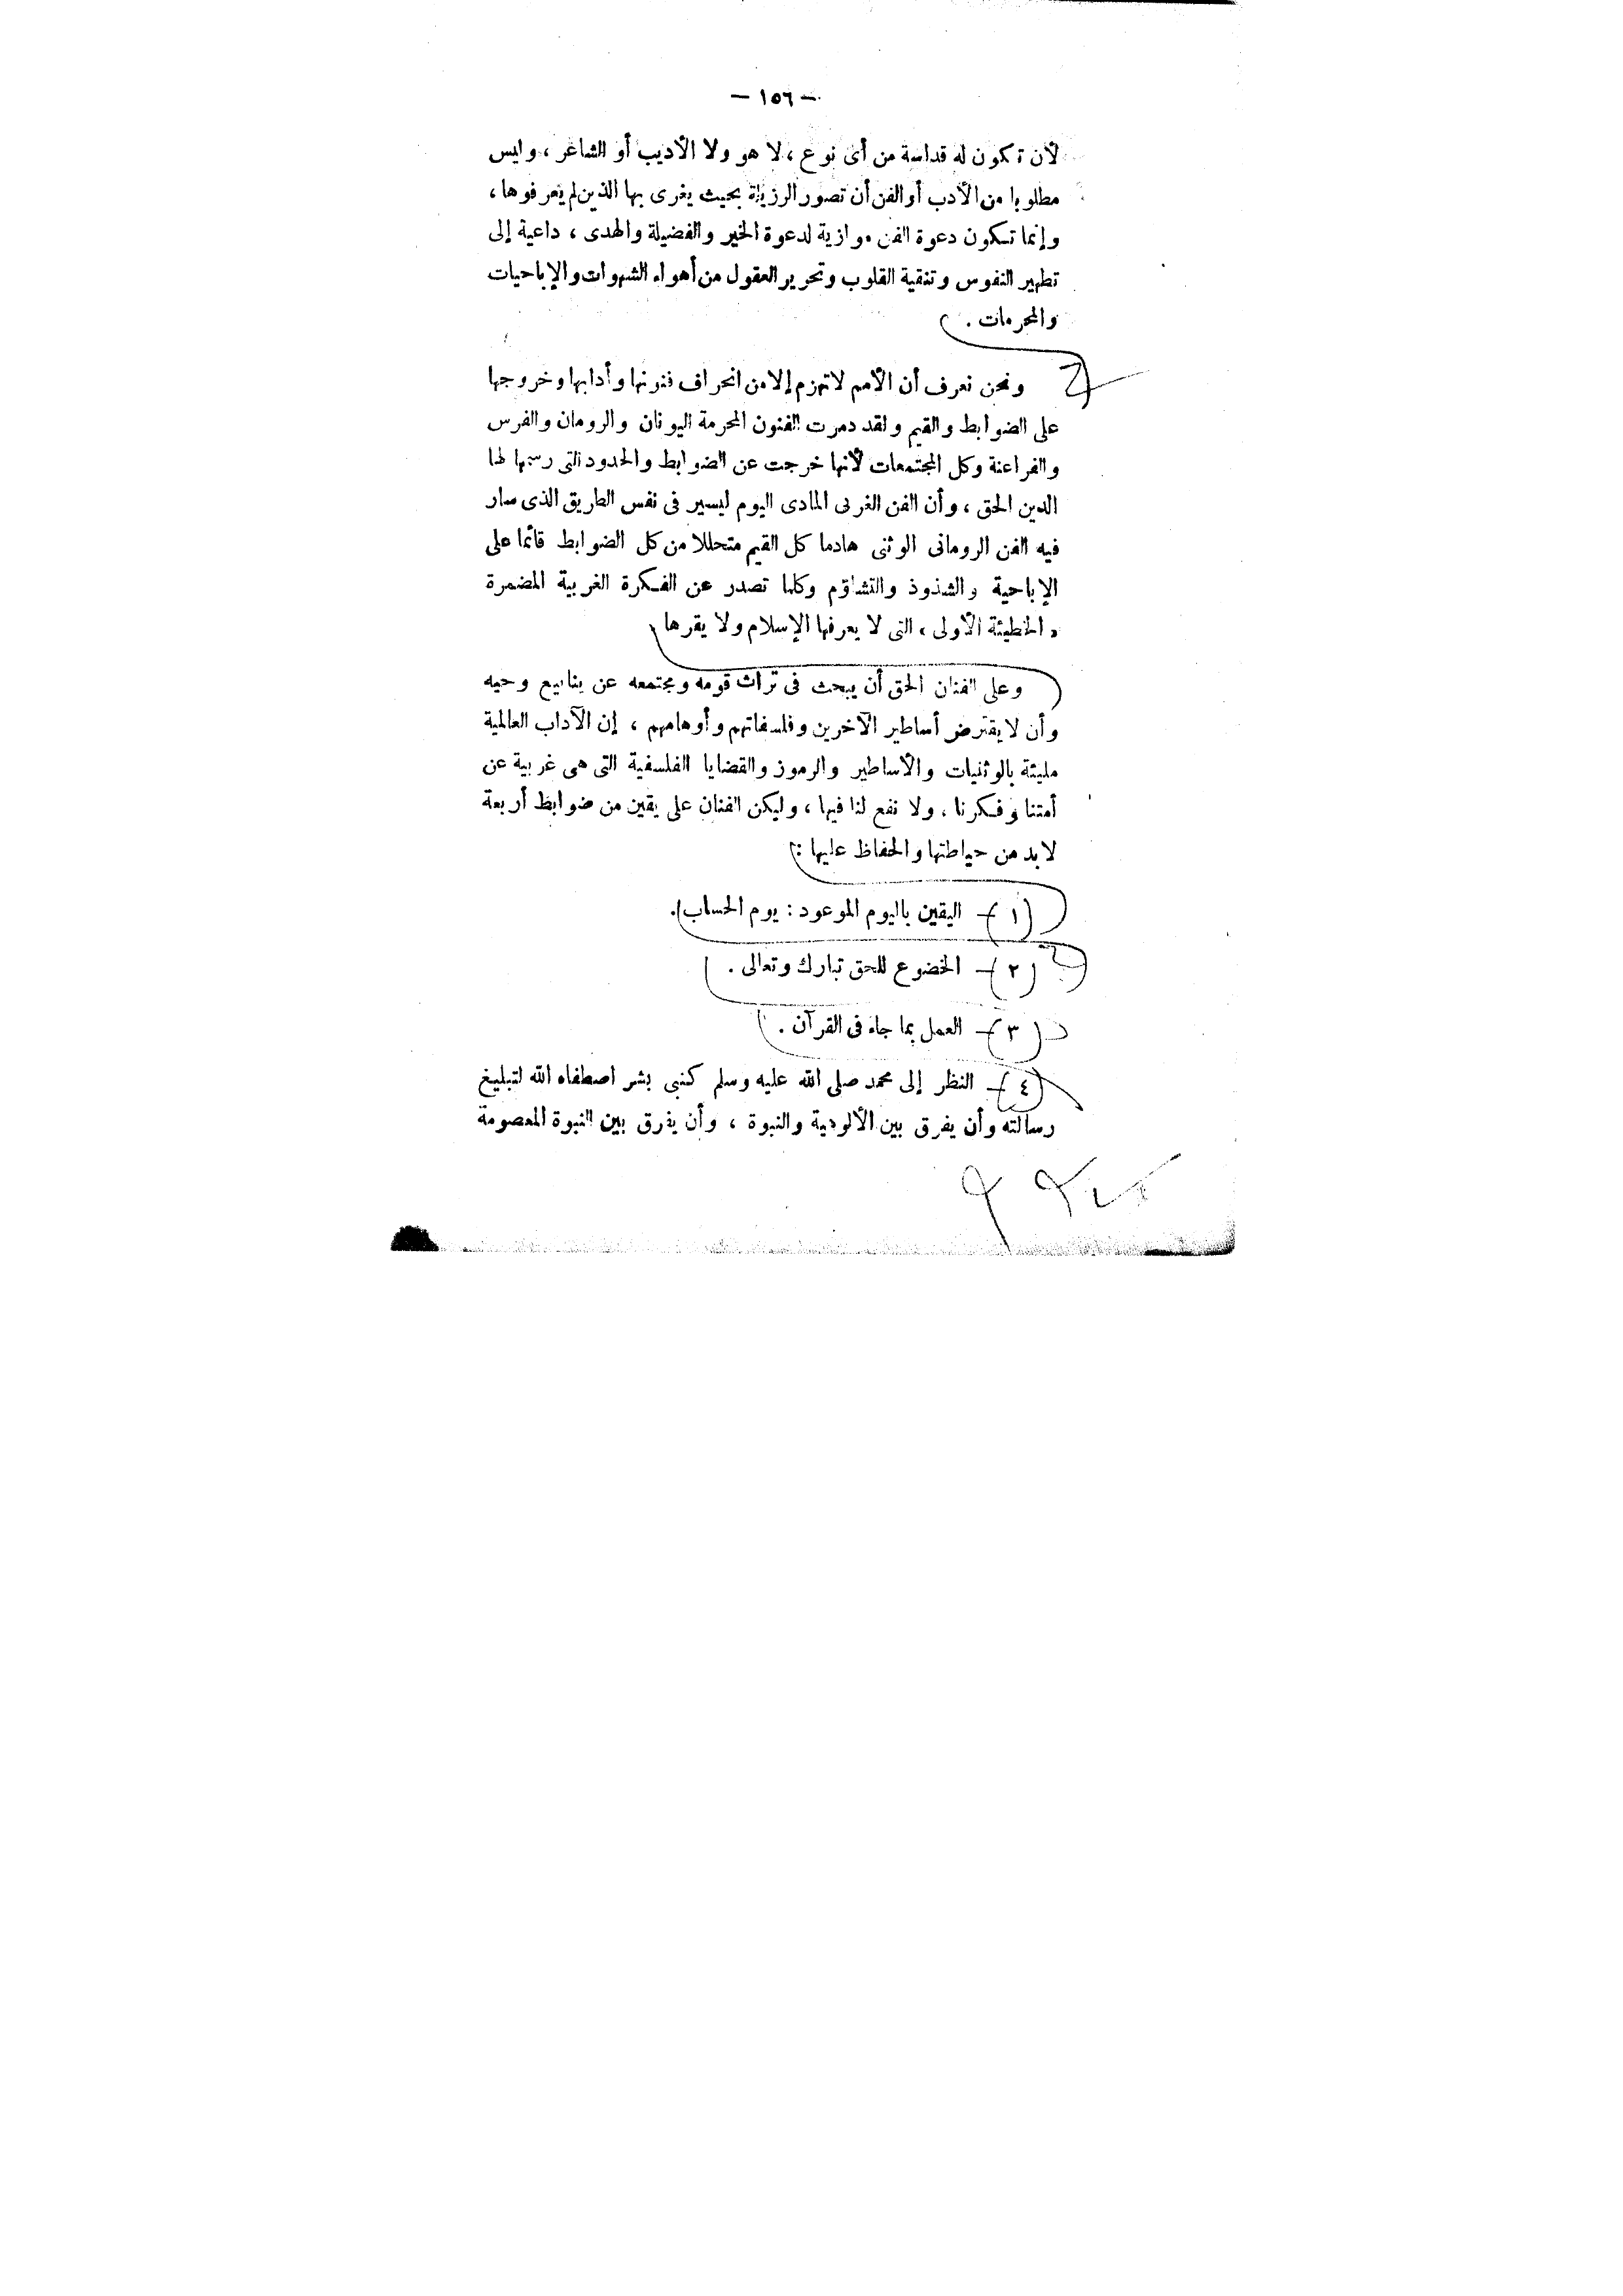 — ١٥٦ —
لأن تكون له قداسة من أى نوع ، لا هو ولا الأديب أو الشاعر ، وليس
مطلوبا من الأدب أو الفن أن تصور الرزيلة بحيث يغرى بها الذين لم يعرفوها ،
وإنما تكون دعوة الفن موازية لدعوة الخير والفضيلة والهدى ، داعية إلى
تطهير النفوس وتنقية القلوب وتحرير العقول من أهواء الشهوات والإباحيات
والمحرمات .
ونحن نعرف أن الأمم لا تهزم إلا من انحراف فنونها وأدابها وخروجها
على الضوابط والقيم ولقد دمرت الفنون المحرمة اليونان والرومان والفرس
والفراعنة وكل المجتمعات لأنها خرجت عن الضوابط والحدود التى رسمها لها
الدين الحق ، وأن الفن الغربى المادى اليوم ليسير فى نفس الطريق الذى سار
فيه الفن الرومانى الوثنى هادما كل القيم متحللا من كل الضوابط قائما على
الإباحية والشذوذ والتشاؤم وكلها تصدر عن الفكرة الغربية المضمرة
« الخطيئة الأولى » التى لا يعرفها الإسلام ولا يقرها
وعلى الفنان الحق أن يبحث فى تراث قومه ومجتمعه عن ينابيع وحيه
وأن لا يقترض أساطير الآخرين وفلسفاتهم وأوهامهم ، إن الآداب العالمية
مليئة بالوثنيات والأساطير والرموز والقضايا الفلسفية التى هى غريبة عن
أمتنا وفكرنا ، ولا نفع لنا فيها ، وليكن الفنان على يقين من ضوابط أربعة
لابد من حياطتها والحفاظ عليها :
(١) — اليقين باليوم الموعود : يوم الحساب .
(٢) — الخضوع للحق تبارك وتعالى .
(٣) — العمل بما جاء فى القرآن .
(٤) — النظر إلى محمد صلى الله عليه وسلم كنبى بشر اصطفاه الله لتبليغ
رسالته وأن يفرق بين الألوهية والنبوة ، وأن يفرق بين النبوة المعصومة